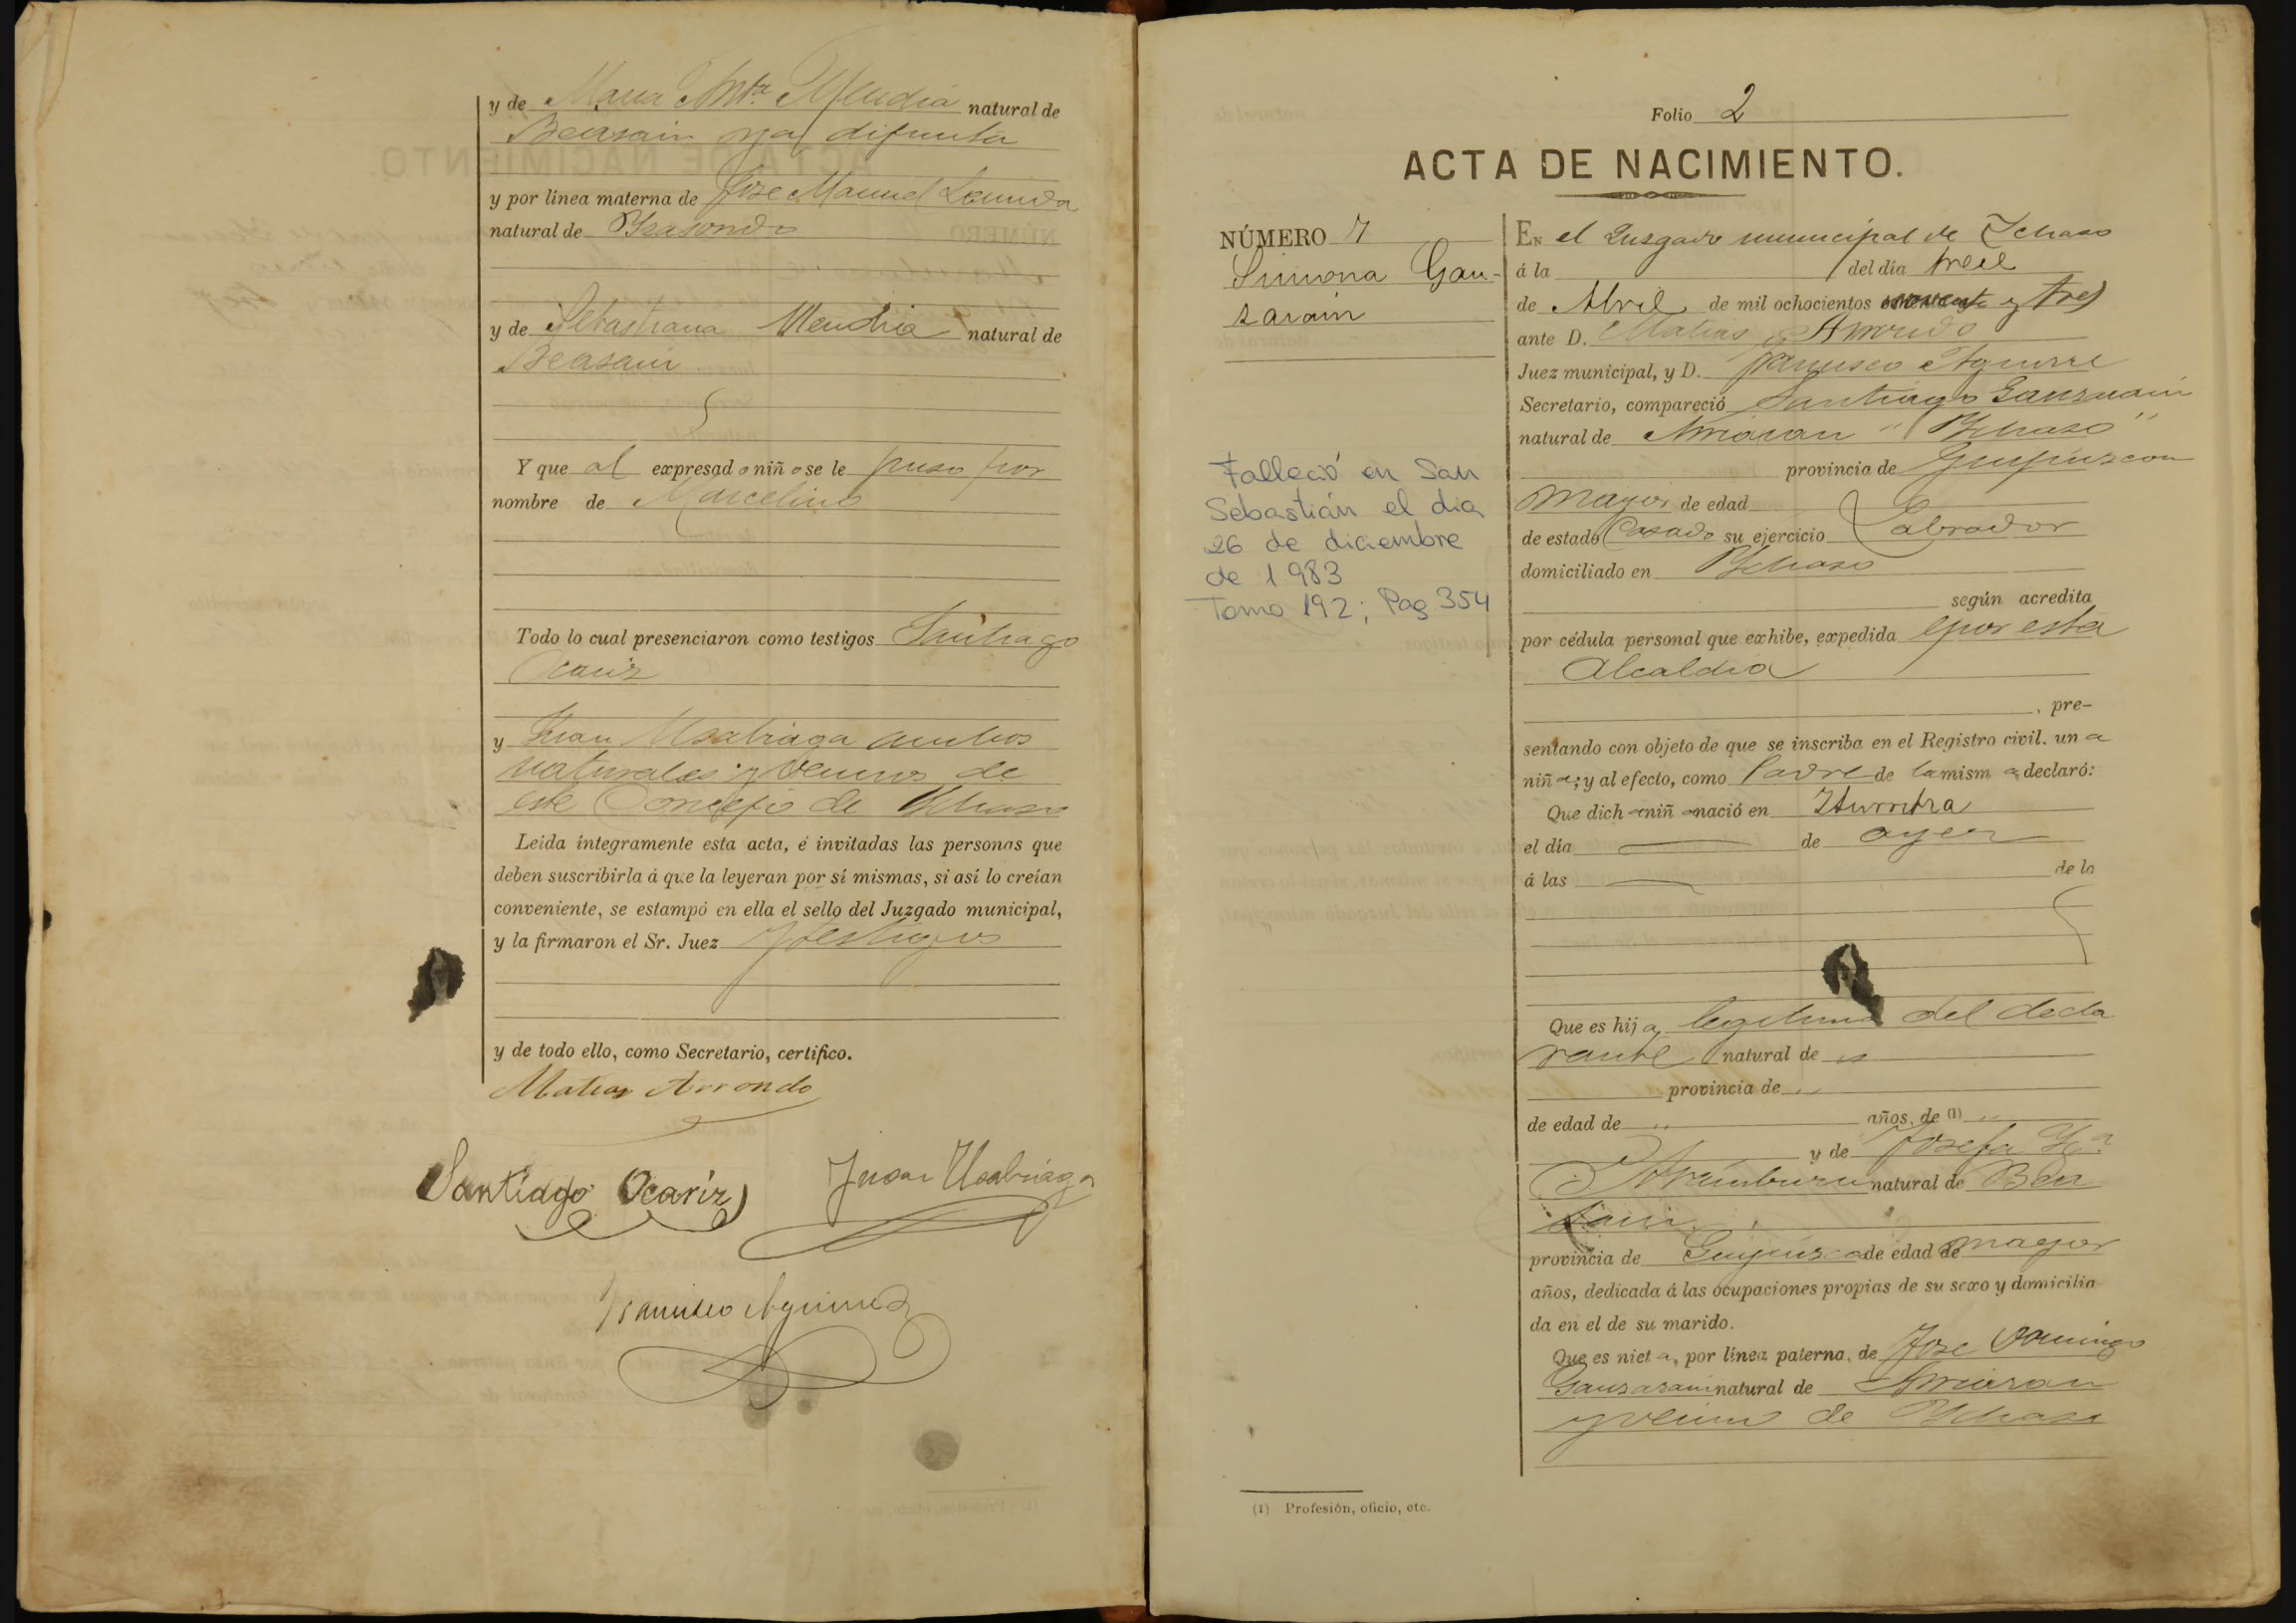 y de Maria Anta Mendia natural de
Beasain ya difunta
y por línea materna de Jose Manuel
natural de
y de Sebastiana Mendia natural de
Beasain
Y que al expresado niño se le puso por
nombre de Marcelino
Todo lo cual presenciaron como testigos Santiago
Ocariz
y Juan Usabiaga ambos
naturales y vecinos de
este Concejo de Ychaso
Leída íntegramente esta acta, é invitadas las personas que
deben suscribirla á que la leyeran por sí mismas, si así lo creían
conveniente, se estampó en ella el sello del Juzgado municipal,
y la firmaron el Sr. Juez y testigos
y de todo ello, como Secretario, certifico.
Matias Arrondo
Santiago Ocariz Juan Usabiaga
Francisco Aguirre
Folio 2
ACTA DE NACIMIENTO.
NÚMERO 7
Simona Gan-
zarain
Falleció en San
Sebastián el dia
26 de diciembre
de 1983
Tomo 192; Pag 354
EN el Jusgado municipal de Ichaso
á la del día trece
de Abril de mil ochocientos noventa y tres
ante D. Matias Arrondo
Juez municipal, y D. Francisco Aguirre
Secretario, compareció Santiago Ganzarain
natural de Arriaran Ychaso
provincia de Guipuzcoa
mayor de edad
de estado Casado su ejercicio Labrador
domiciliado en Ychaso
según acredita
por cédula personal que exhibe, expedida por esta
Alcaldia
, pre-
sentando con objeto de que se inscriba en el Registro civil. una
niña; y al efecto, como Padre de la misma declaró:
Que dicha niña nació en Iturritza
el día de ayer
á las de la
Que es hija legitima del decla
rante natural de "
provincia de "
de edad de " años, de (1) "
y de Josefa
Aramburu natural de Bea
sain
provincia de Guipuzcoa de edad de mayor
años, dedicada á las ocupaciones propias de su sexo y domicilia-
da en el de su marido.
Que es nieta, por línea paterna, de Jose Domingo
Ganzarain natural de Arriaran
y vecino de Ychaso
(1) Profesión, oficio, etc.